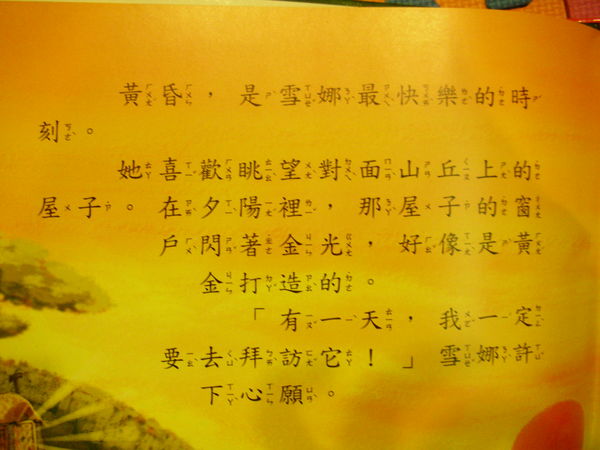 黃昏，是雪娜最快樂的時
刻。
她喜歡眺望對面山丘上的
屋子。在夕陽裡，那屋子的窗
戶閃著金光，好像是黃
金打造的。
「有一天，我一定
要去拜訪它！」雪娜許
下心願。